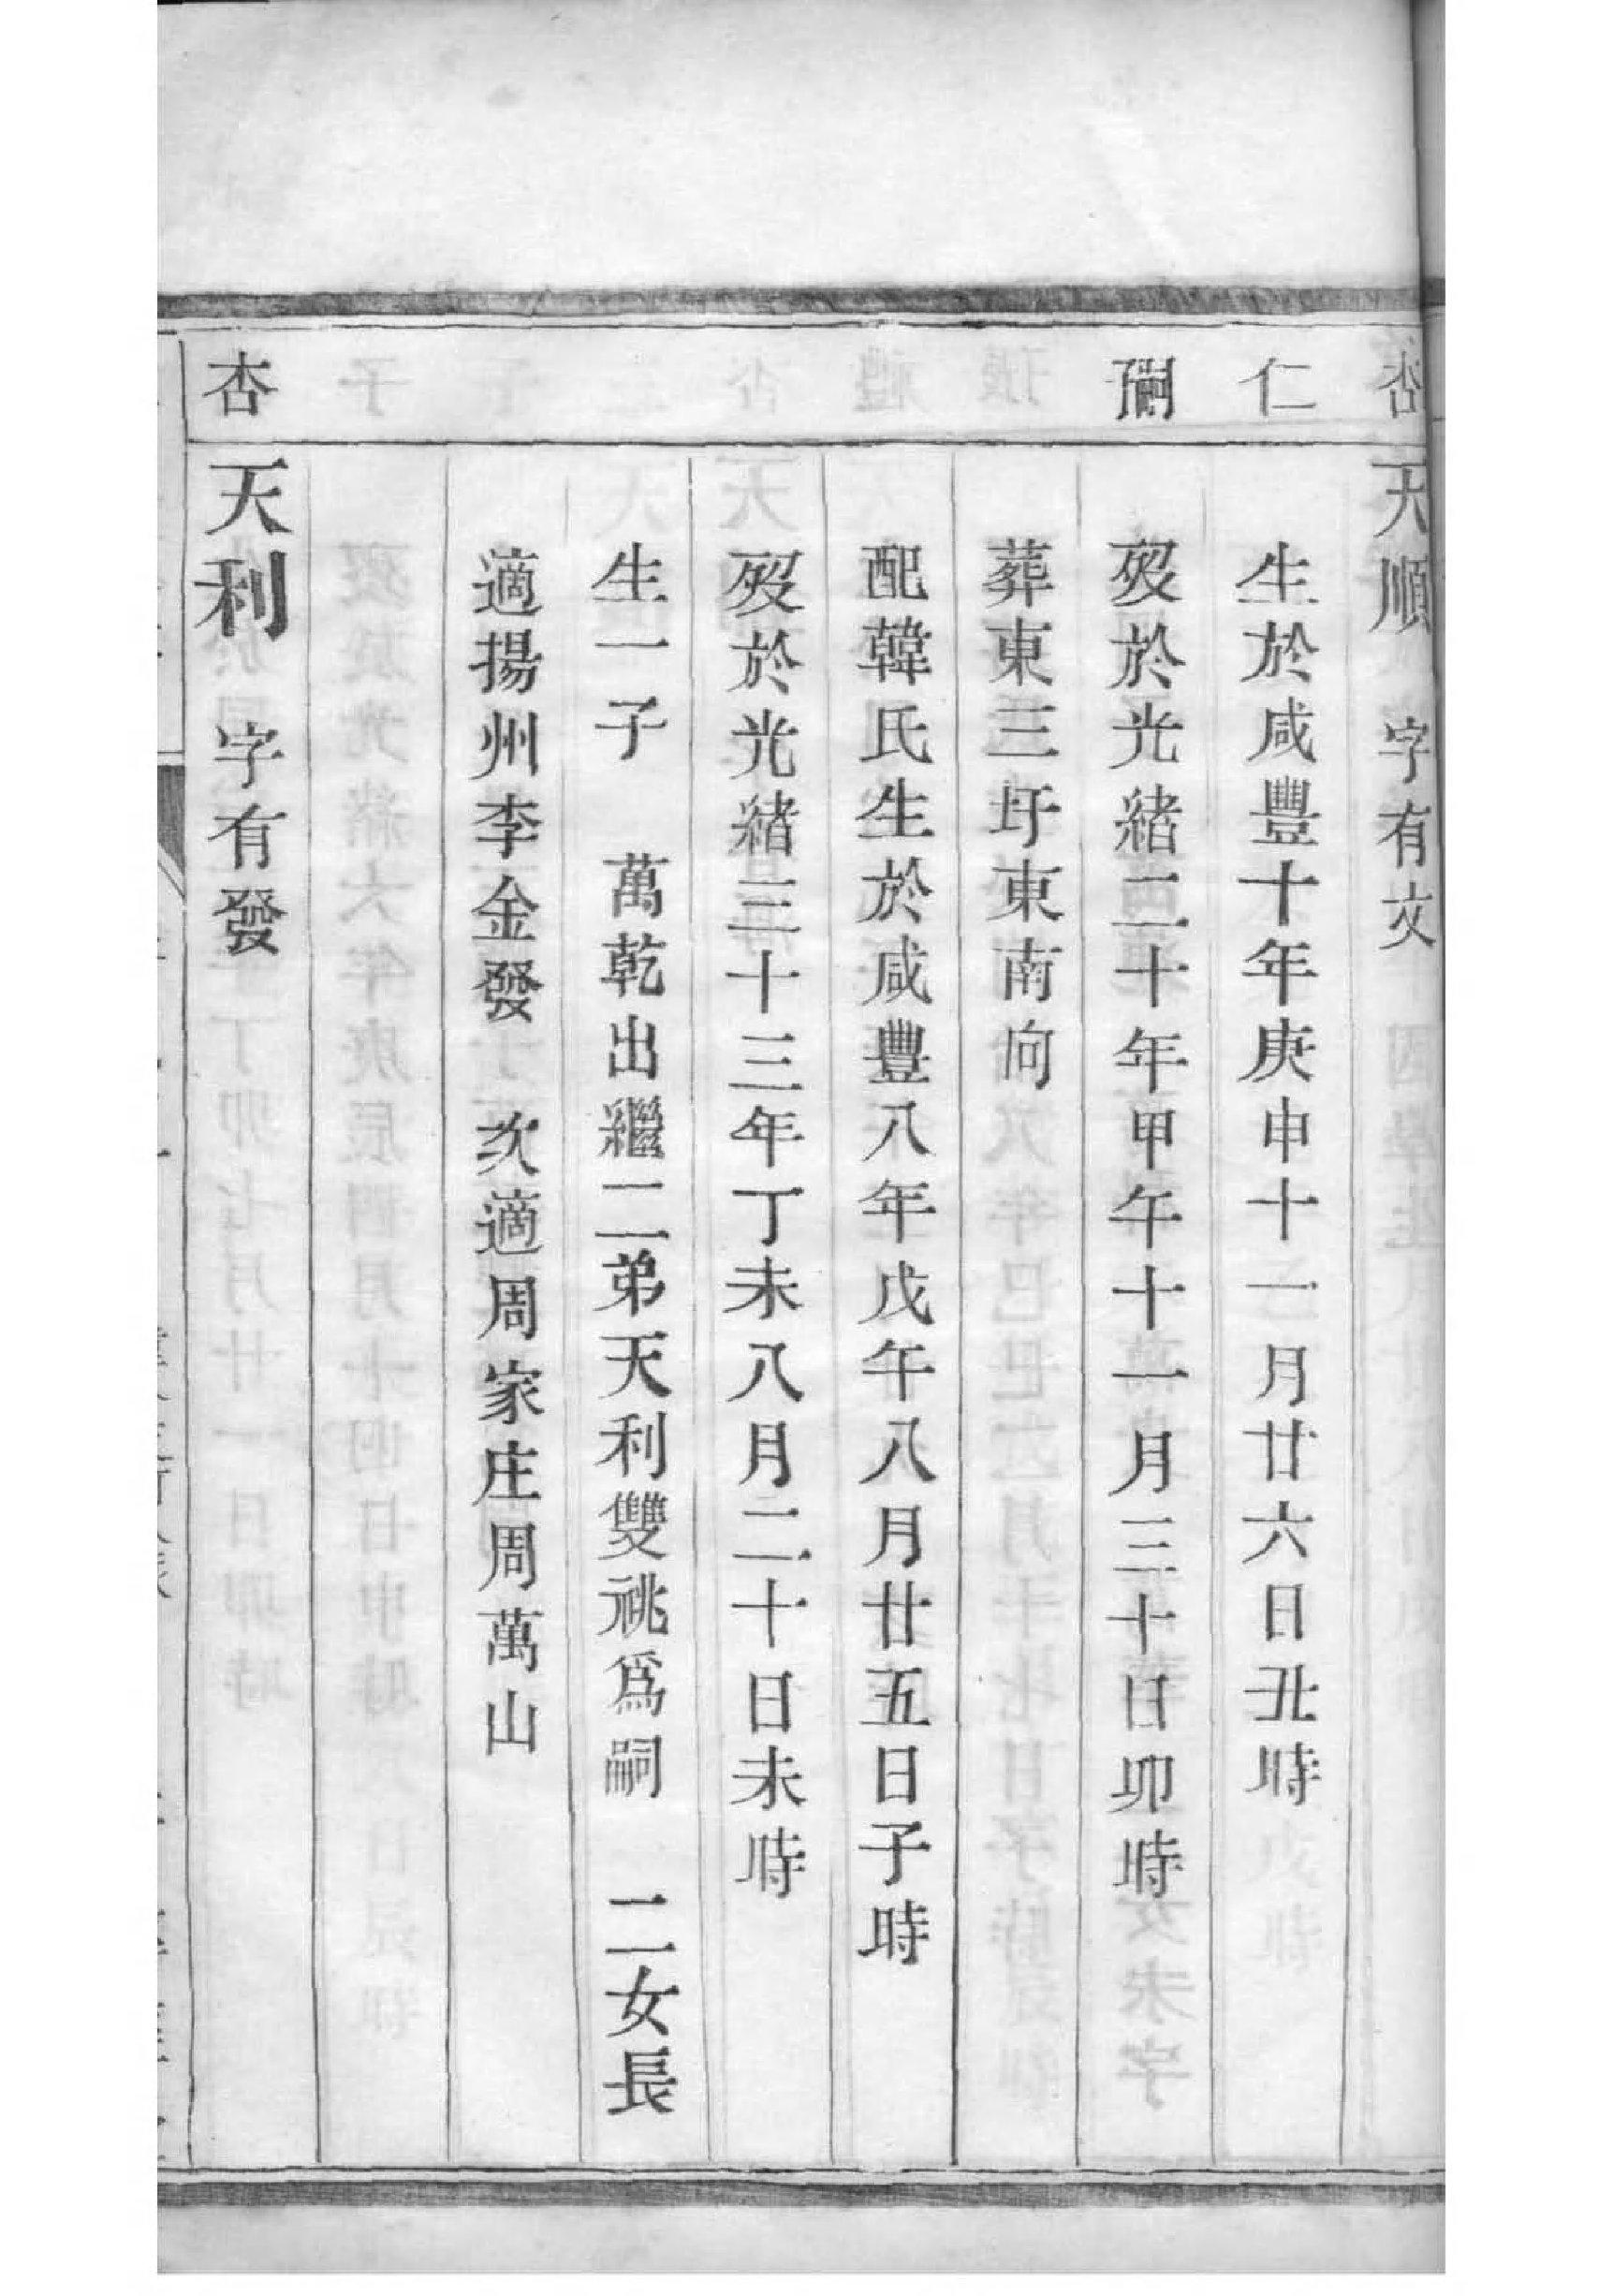 杏 天順 字有文
仁 生於咸豐十年庚申十一月廿六日丑時
嗣子 歿於光緒二十年甲午十一月三十日卯時
葬東三圩東南向
配韓氏生於咸豐八年戊午八月廿五日子時
歿於光緒三十三年丁未八月二十日未時
生一子 萬乾出繼二弟天利雙祧爲嗣 二女長
適揚州李金發 次適周家庄周萬山
杏 天利 字有發